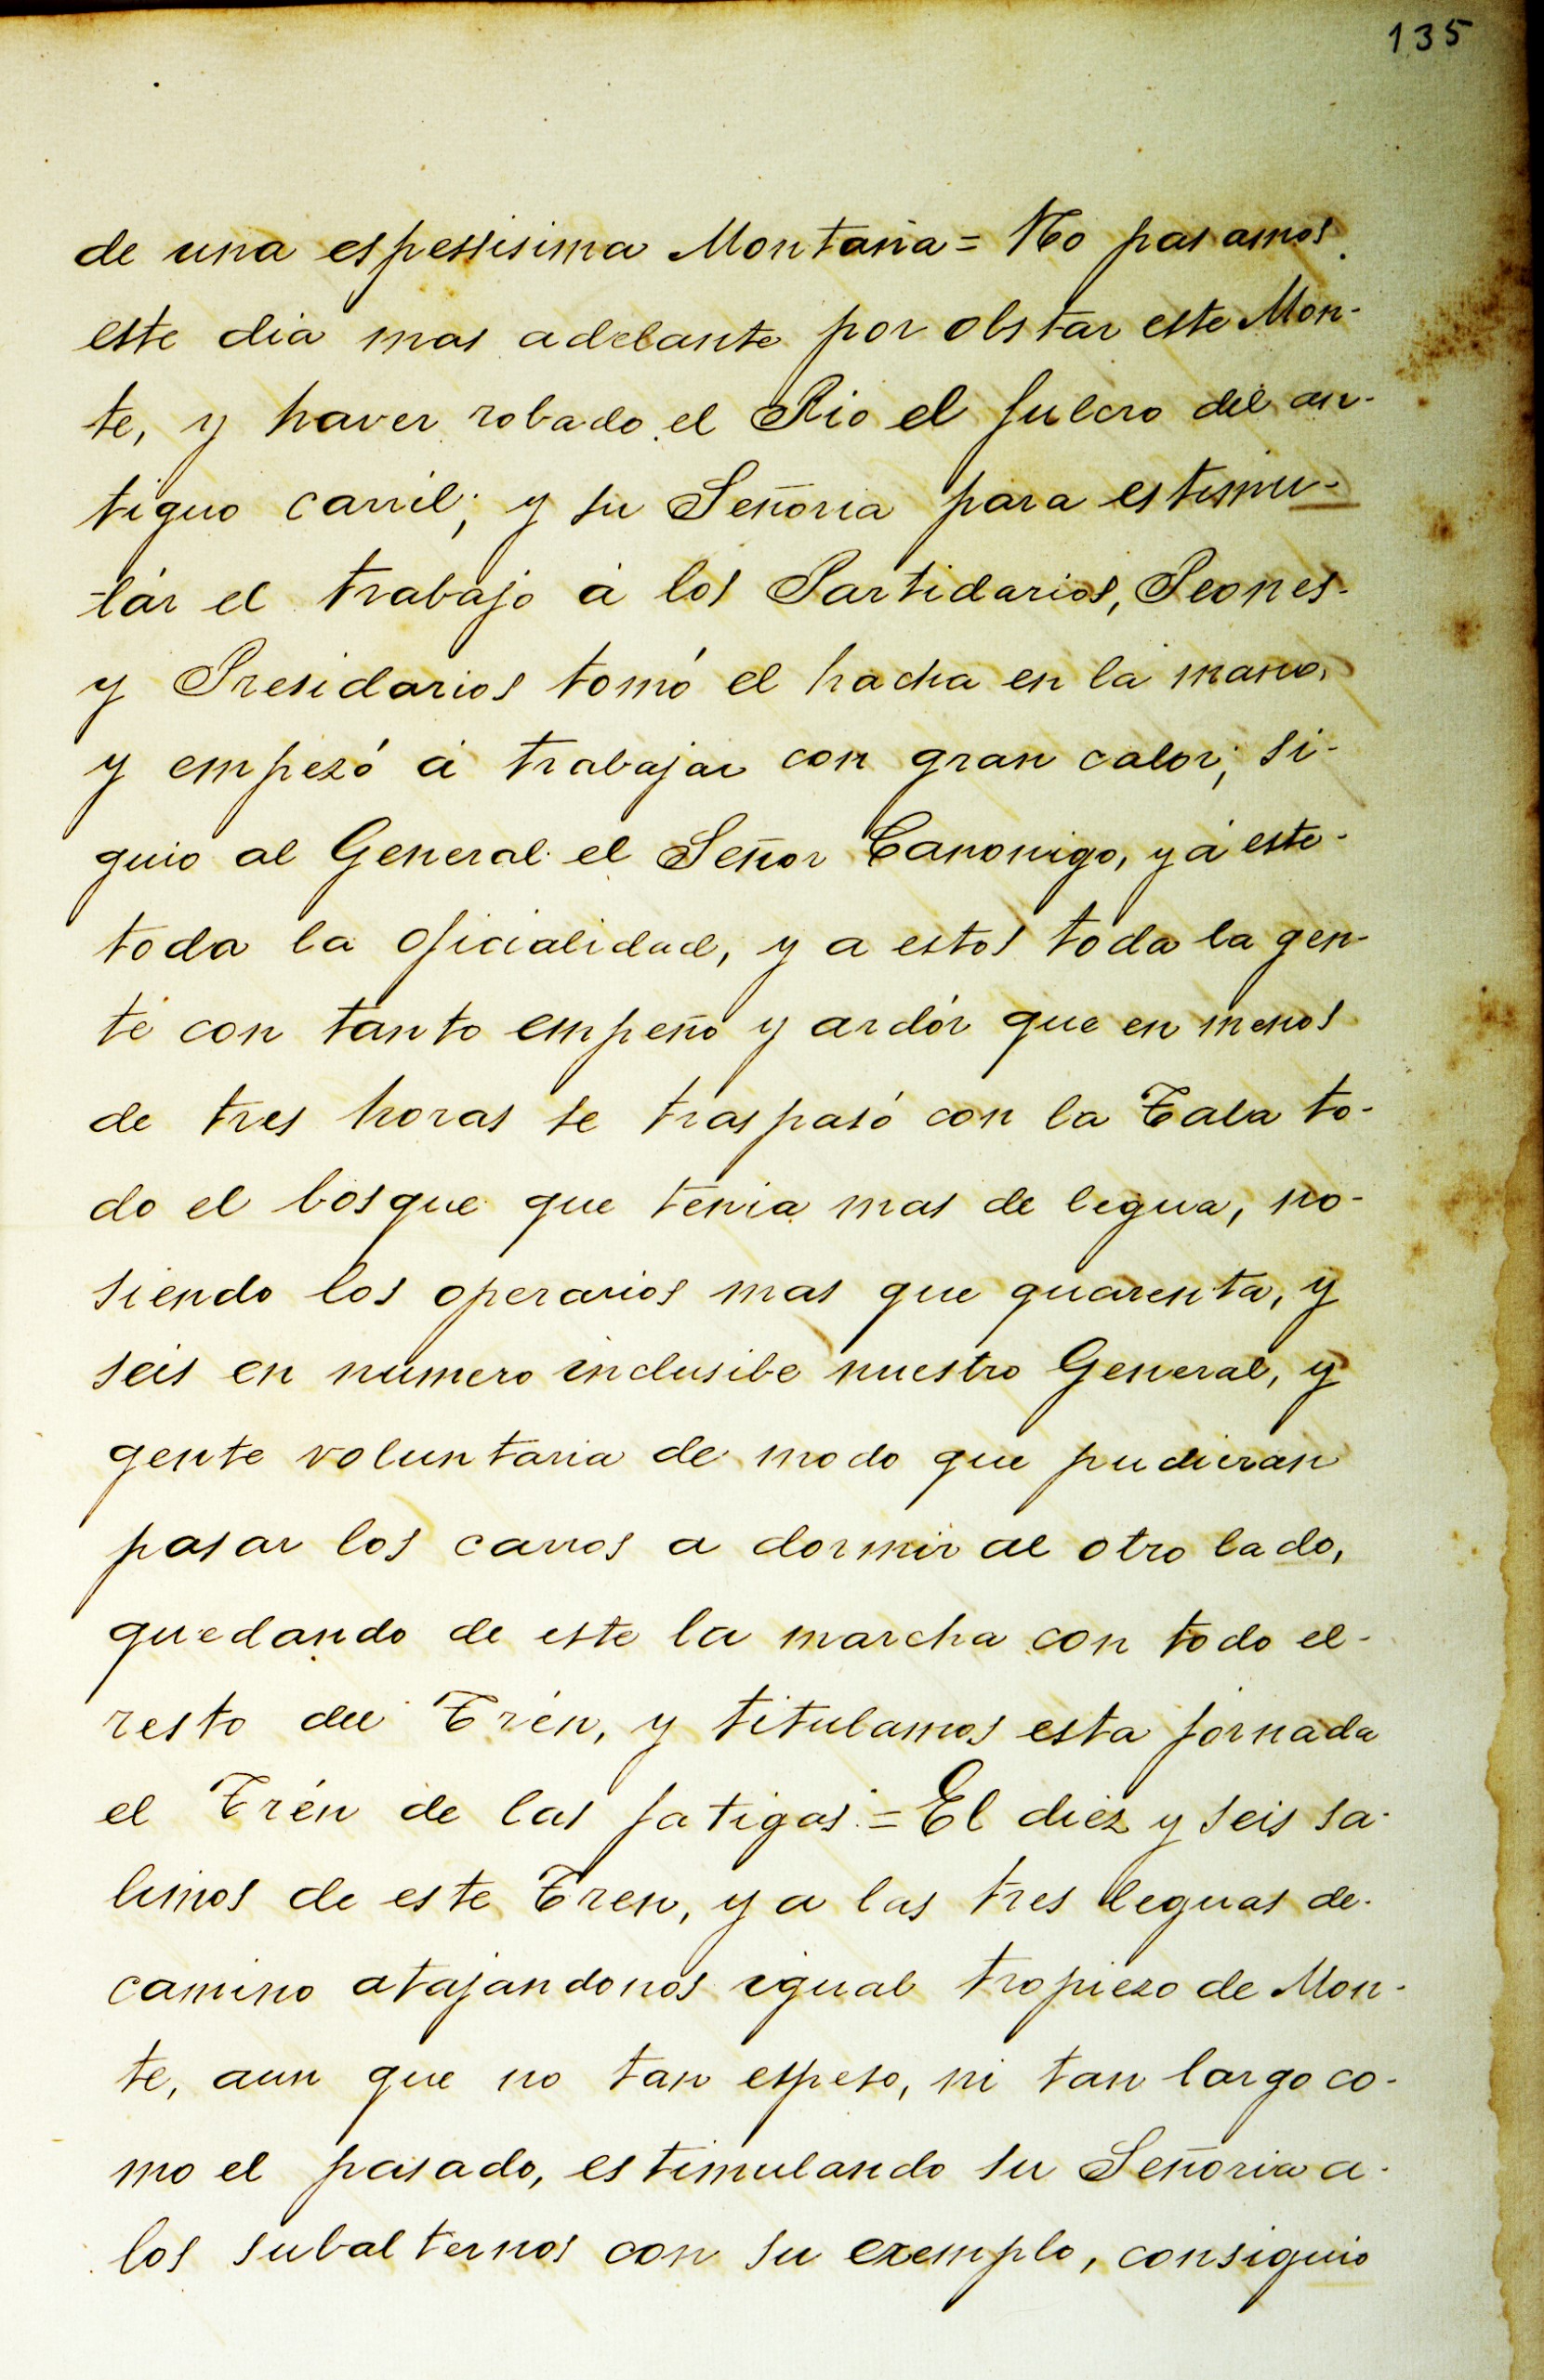 135
de una espessisima Montaña = No pasamos
este dia mas adelante por obstar este Mon-
te, y haver robado el Rio el fulcro del an-
tiguo carril; y su Señoria para estimu-
lár el trabajo á los Partidarios, Peones-
y Presidarios tomó el hacha en la mano,
y empezó á trabajar con gran calor; si-
guio al General el Señor Canonigo, y á este-
toda la oficialidad, y a estos toda la gen-
te con tanto empeño y ardór que en menos
de tres horas se traspasó con la Tala to-
do el bosque que tenia mas de legua, no-
siendo los operarios mas que quarenta, y
seis en numero inclusibe nuestro General, y
gente voluntaria de modo que pudieran
pasar los carros a dormir al otro lado,
quedando de este la marcha con todo el-
resto del Trén, y titulamos esta jornada
el Trén de las fatigas = El diez y seis sa-
limos de este Tren, y a las tres leguas de-
camino atajandonos igual tropiezo de Mon-
te, aun que no tan espeso, ni tan largo co-
mo el pasado, estimulando su Señoria a-
los subalternos con su exemplo, consiguio